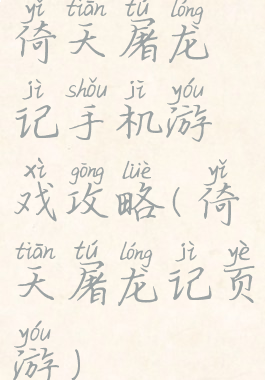 yǐ tiān tú lóng
倚天屠龙
jì shǒu jī yóu
记手机游
xì gōng lüè yǐ
戏攻略(倚
tiān tú lóng jì yè
天屠龙记页
yóu
游)